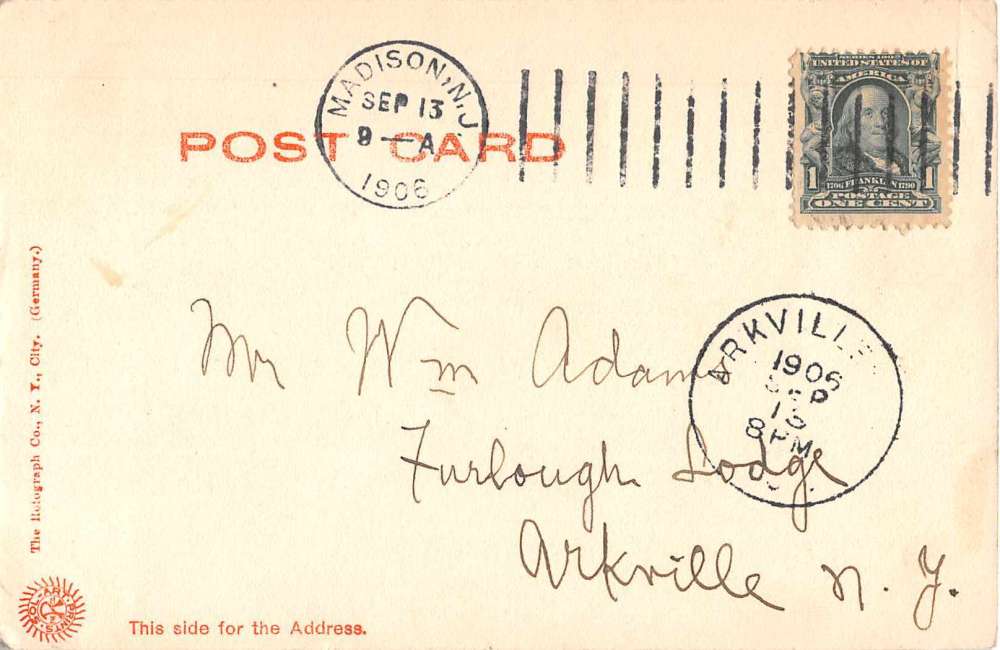 MADISON, N.J
SEP 13
9—A
1906
SERIES 1902
UNITED STATES OF
AMERICA
1 1
1706 FRANKLIN 1790
POSTAGE
ONE CENT
POST CARD
Mr Wm Adams
Furlough Lodge
Arkville N. Y.
ARKVILLE
1906
SEP
13
8PM
The Rotograph Co., N. Y., City. (Germany.)
This side for the Address.